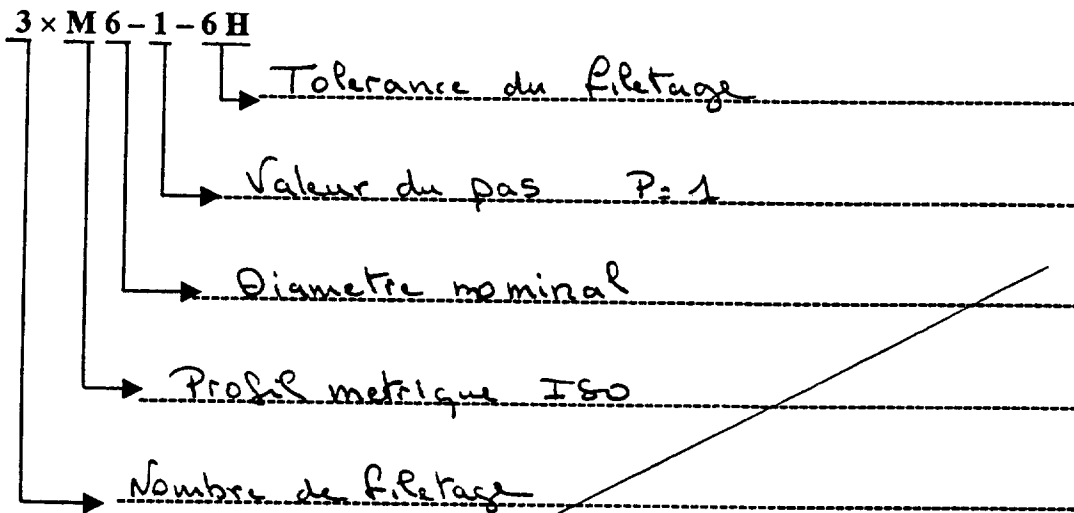 3 × M 6 - 1 - 6 H
Tolerance du filetage
Valeur du pas P: 1
Diametre nominal
Profil metrique ISO
Nombre de filetage